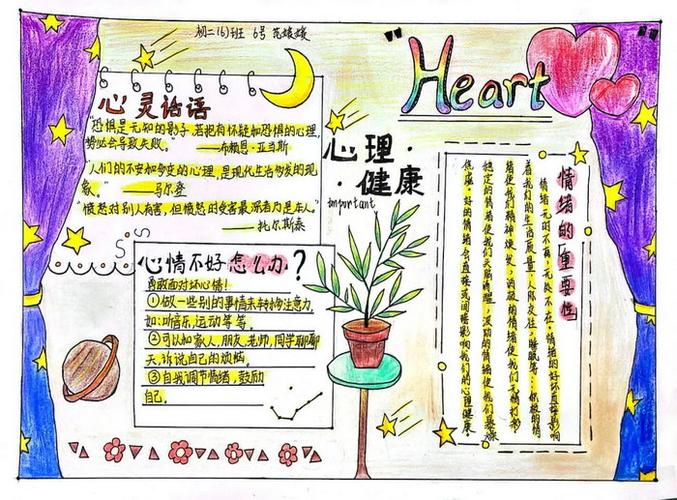 初二(6)班 6号 范嫒嫒
"Heart"
心灵话语
"恐惧是无知的影子，若抱有怀疑和恐惧的心理，
势必会导致失败。" ——布赖恩·亚当斯
"人们的不安和多变的心理，是现代生活物发的现
象。" ——马尔登
"愤怒对别人有害，但愤怒时受害最深者乃是本人。"
——托尔斯泰
心理·
·健康
important
心情不好怎么办？
勇敢面对坏心情！
①做一些别的事情来转移注意力，
如：听音乐，运动等等。
②可以和家人，朋友，老师，同学聊聊
天，诉说自己的烦恼。
③自我调节情绪，鼓励
自己。
情绪的重要性
情绪无时不有，无处不在。情绪的好坏直接影响
着我们的生活质量，人际交往，睡眠等：积极的情
绪使我们精神焕发，消极的情绪使我们无精打彩
稳定的情绪使我们头脑清醒，波动的情绪使我们暴燥
焦虑。好的情绪会直接或间接影响我们的心理健康。